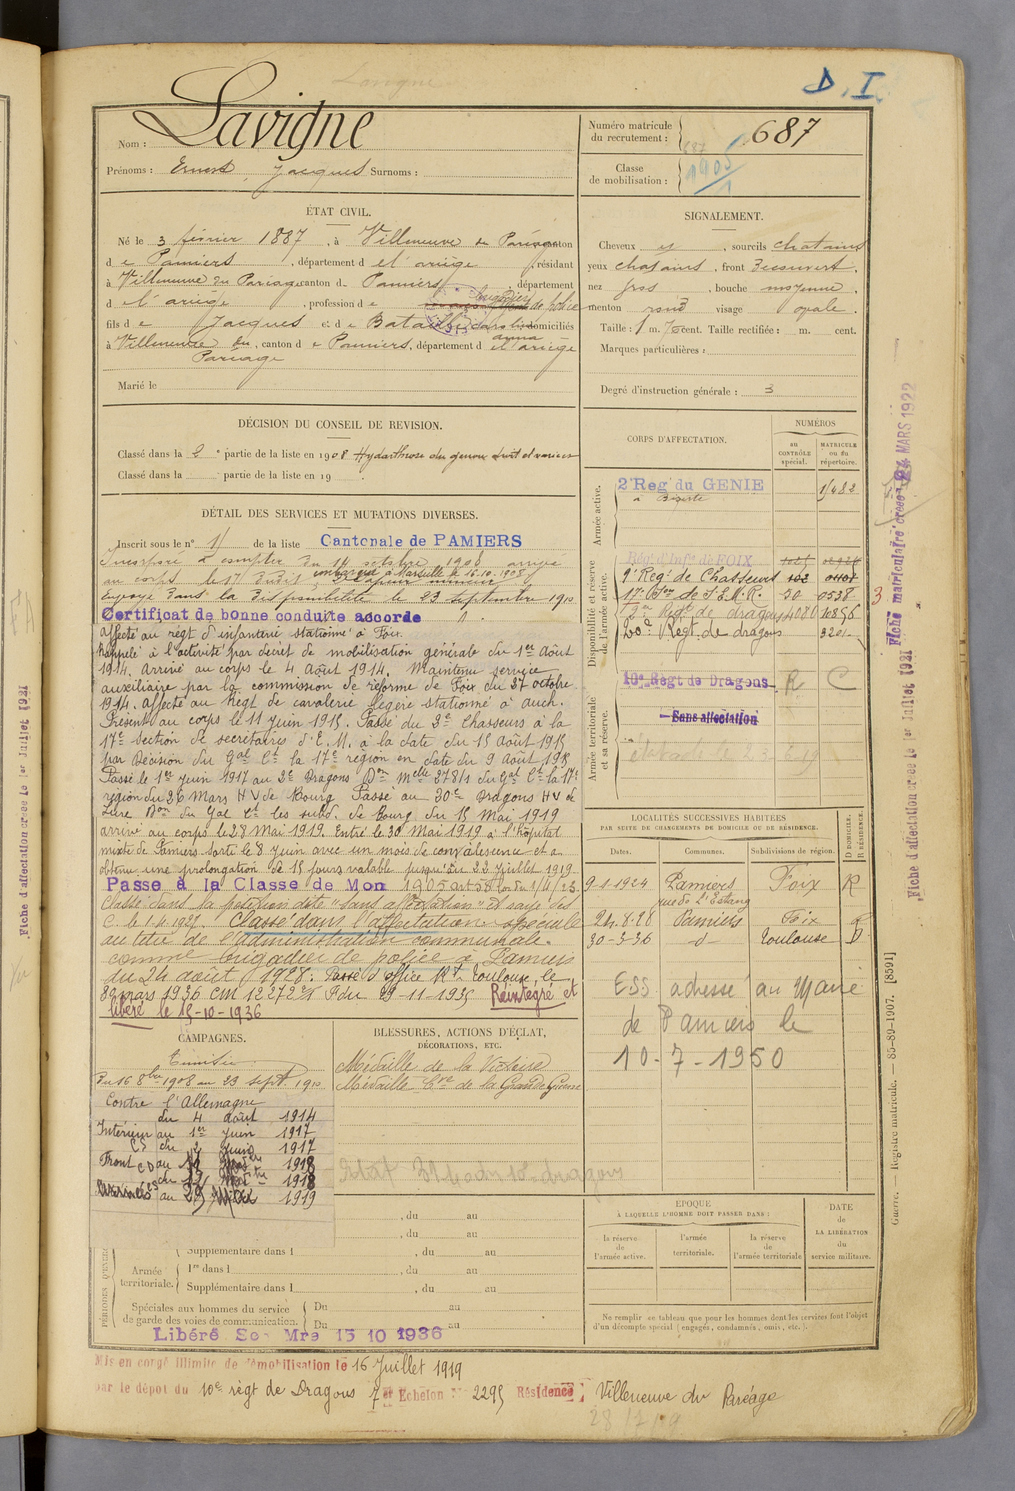 D. I.
Lavigne
Nom :
Prénoms : Ernest Jacques Surnoms :
Numéro matricule du recrutement : 687
Classe de mobilisation : 1905
ÉTAT CIVIL.
Né le 3 février 1887, à Villeneuve du Paréage canton
d e Pamiers, département d e l'ariège, résidant
à Villeneuve du Pariage canton d Pamiers, département
d e l'ariège, profession d e brigadier de police
fils d e Jacques et d e Bataille domiciliés
à Villeneuve du Pareage, canton d e Pamiers, département d e l'ariège
Marié le
SIGNALEMENT.
Cheveux et, sourcils chatains
yeux chatains, front Découvert.
nez gros, bouche moyenne.
menton rond visage ovale.
Taille : 1 m. 70 cent. Taille rectifiée : m. cent.
Marques particulières :
Degré d'instruction générale : 3
DÉCISION DU CONSEIL DE REVISION.
Classé dans la 2e partie de la liste en 1908 Hydarthrose du genou droit et varices
Classé dans la partie de la liste en 19
DÉTAIL DES SERVICES ET MUTATIONS DIVERSES.
Inscrit sous le n° 11 de la liste Cantonale de PAMIERS
Incorporé à compter du octobre 1908 arrivé
au corps le dit embarqué à Marseille le 16-10-1908
Envoyé dans la Disponibilité le 23 septembre 1910
Certificat de bonne conduite accorde
affecté au régt d'infanterie stationné à Foix.
Rappelé à l'activité par décret de mobilisation générale du 1er Août
1914. Arrivé au corps le 4 Août 1914. Maintenu service
auxiliaire par la commission de réforme de Foix du 27 octobre
1914. affecté au Régt de cavalerie légère stationné à auch.
Présent au corps le 11 juin 1915. Passé du 9e Chasseurs à la
17e Section de secrétaires d'E. M. à la date du 15 Août 1915
par Décision du Gal Ct la 17e région en date du 9 Août 1915
Passé le 1er juin 1917 au 2e Dragons Don Melle 37811 du Gal Ct la 17e
région du 26 Mars H V de Bourg Passé au 30e Dragons HV de
Lure Don du Gal Ct les subd. de Bourg du 15 Mai 1919
arrivé au corps le 28 Mai 1919. Entré le 30 Mai 1919 à l'hôpital
mixte de Pamiers sorti le 8 juin avec un mois de convalescence et a
obtenu une prolongation de 15 jours valable jusqu'au 22 juillet 1919
Passé à la Classe de Mon 1905 art 58 loi du 1/4/23
Classé dans la position dite "sans affectation"
C. le 1.4.1927. Classé dans l'affectation spéciale
au titre de l'administration communale.
comme brigadier de police à Pamiers
du 24 août 1928. Passé d'office Rt Toulouse le
mars 1936 CM 19-11-1935 Réintégré et
libéré le 15-10-1936
CORPS D'AFFECTATION.
NUMÉROS
au CONTRÔLE spécial.
MATRICULE ou du répertoire.
Armée active.
2e Reg du GENIE 1/482
a Bizerte
Disponibilité et réserve de l'armée active.
Rég. d'Infie de FOIX
9e Reg de Chasseurs
17e Son de S.E.M.R. 20 0538
2e Régt de dragons 4080
30e Régt. de dragons 3201
3
Armée territoriale et sa réserve.
10e Régt de Dragons R C
Sans affectation
LOCALITÉS SUCCESSIVES HABITÉES
PAR SUITE DE CHANGEMENTS DE DOMICILE OU DE RÉSIDENCE.
Dates. Communes. Subdivisions de région. D DOMICILE. R RÉSIDENCE.
9-1-1924 Pamiers Foix R
rue de l'Estang
24-8-28 Pamiers Foix R
30-3-36 d Toulouse D
ESS adressé au Maire
de Pamiers le
10-7-1950
CAMPAGNES.
Tunisie
Du 16 8bre 1908 au 23 sept. 1910
Contre l'Allemagne
Intérieur du 4 août 1914
au 1er juin 1917
CS du 2 juin 1917
Front CD au 1918
1918
au 1919
BLESSURES, ACTIONS D'ÉCLAT,
DÉCORATIONS, ETC.
Médaille de la Victoire
Médaille Cve de la Grande Guerre
, du au
, du au
Supplémentaire dans l , du au
Armée territoriale. 1re dans l , du au
Supplémentaire dans l , du au
Spéciales aux hommes du service de garde des voies de communication. Du au
Du au
Libéré Ser Mre 15 10 1936
EPOQUE
À LAQUELLE L'HOMME DOIT PASSER DANS :
la réserve de l'armée active.
l'armée territoriale.
la réserve de l'armée territoriale
DATE de LA LIBÉRATION du service militaire.
Ne remplir ce tableau que pour les hommes dont les services font l'objet
d'un décompte spécial (engagés, condamnés, omis, etc.).
Mis en congé illimité de démobilisation le 16 Juillet 1919
par le dépôt du 10e régt de Dragons 7e Echelon N° 2295 Résidence Villeneuve du Paréage
28/7/19
Guerre. — Registre matricule. — 85-89-1907. [8591]
Fiche d'affectation créée le 1er Juillet 1931
Fiche matriculaire créée le 24 MARS 1922
Fiche d'affectation créée le 1er Juillet 1931